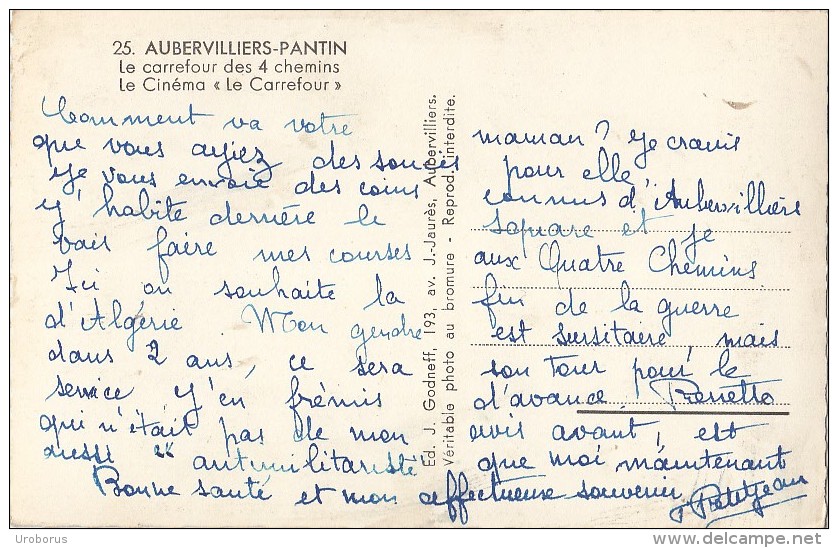 25. AUBERVILLIERS-PANTIN
Le carrefour des 4 chemins
Le Cinéma « Le Carrefour »
Comment va votre maman ? Je crains
que vous ayiez des soucis pour elle
Je vous envoie des coins connus d'Aubervilliers
J'habite derrière le square et je
vais faire mes courses aux Quatre Chemins
Ici on souhaite la fin de la guerre
d'Algérie Mon gendre est sursitaire, mais
dans 2 ans, ce sera son tour pour le
service J'en frémis d'avance
qui n'était pas de mon avis avant, est
aussi "antimilitariste que moi maintenant
Bonne santé et mon affectueuse souvenir
Petitjean
Ed. J. Godneff, 193, av. J.-Jaurès, Aubervilliers.
Véritable photo au bromure - Reprod. interdite.
Uroborus
delcampe.net